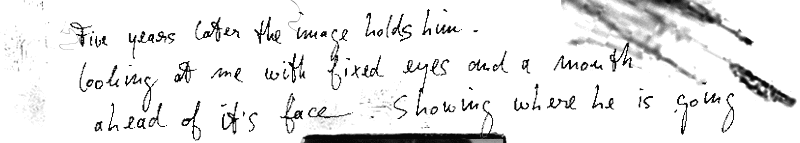 Five years later the image holds him.
looking at me with fixed eyes and a mouth
ahead of it's face. Showing where he is going